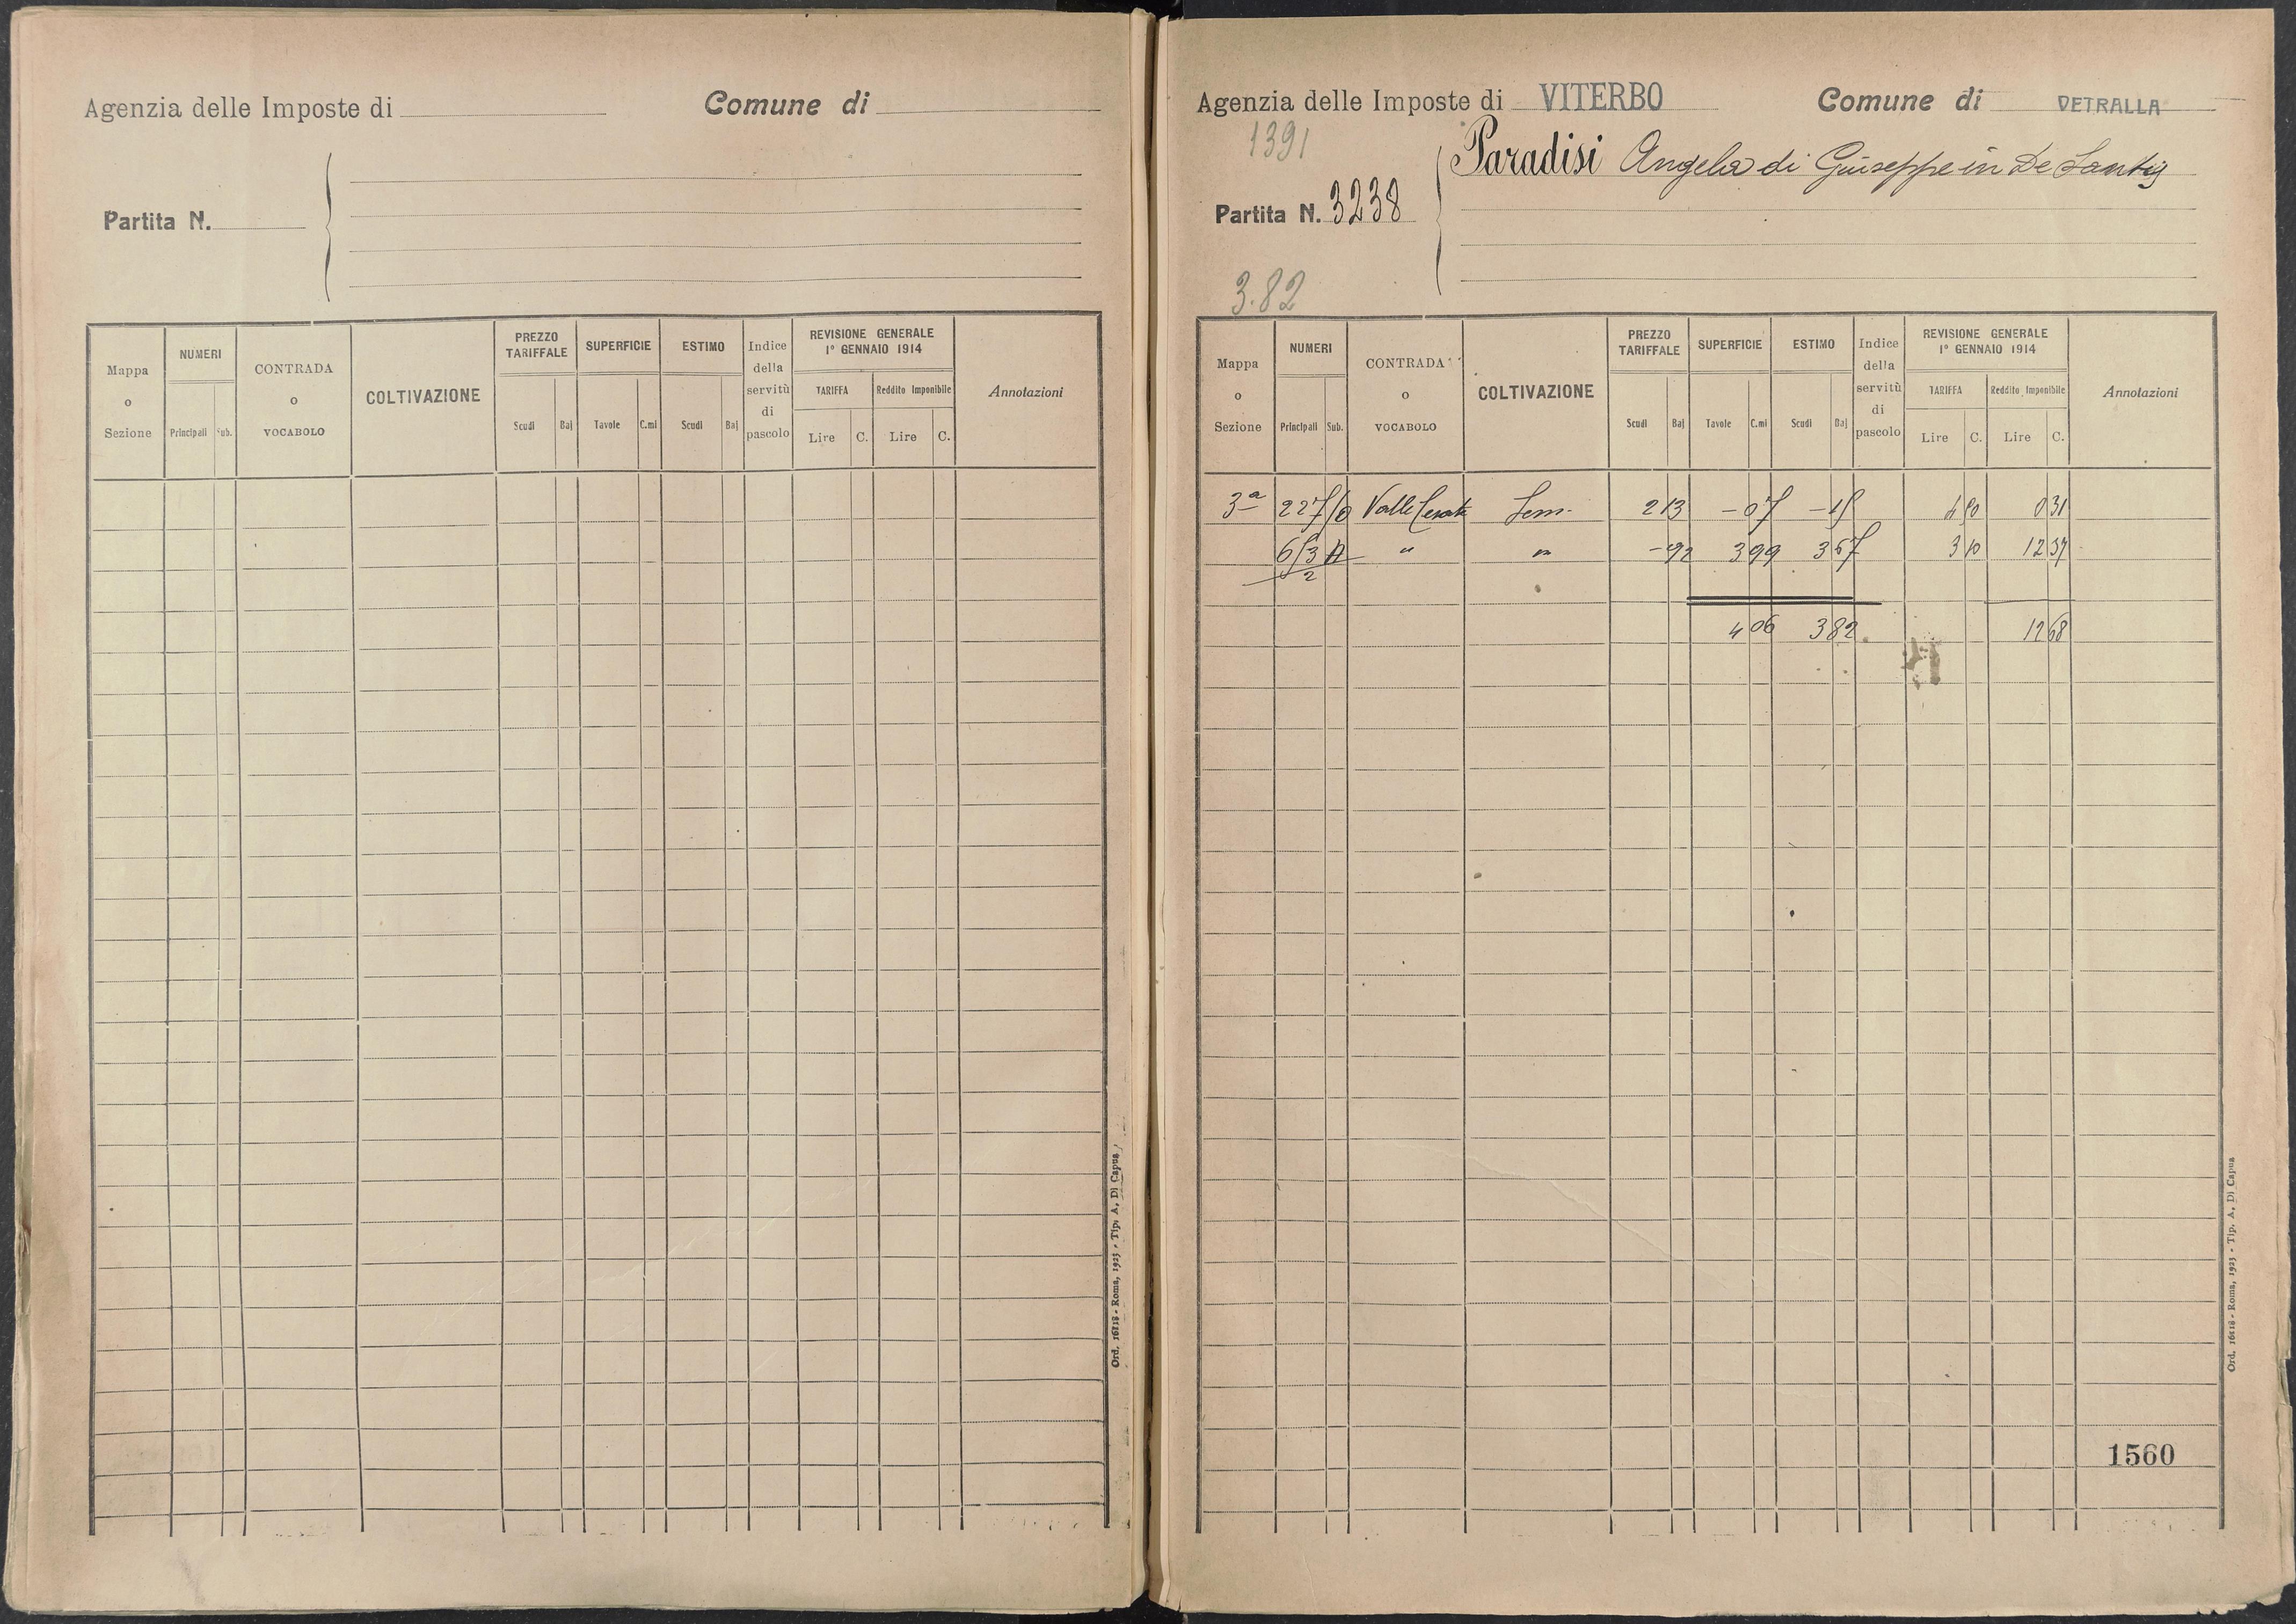 Agenzia delle Imposte di
Comune di
Partita N.
Mappa o Sezione
NUMERI
Principali
Sub.
CONTRADA o VOCABOLO
COLTIVAZIONE
PREZZO TARIFFALE
Scudi
Baj
SUPERFICIE
Tavole
C.mi
ESTIMO
Scudi
Baj
Indice della servitù di pascolo
REVISIONE GENERALE
1° GENNAIO 1914
TARIFFA
Lire
C.
Reddito Imponibile
Lire
C.
Annotazioni
Ord. 16118 - Roma, 1923 - Tip. A. Di Capua
Agenzia delle Imposte di VITERBO
Comune di VETRALLA
1391
Paradisi Angela di Giuseppe in De Santis
Partita N. 3238
3.82
Mappa o Sezione
NUMERI
Principali
Sub.
CONTRADA o VOCABOLO
COLTIVAZIONE
PREZZO TARIFFALE
Scudi
Baj
SUPERFICIE
Tavole
C.mi
ESTIMO
Scudi
Baj
Indice della servitù di pascolo
REVISIONE GENERALE
1° GENNAIO 1914
TARIFFA
Lire
C.
Reddito Imponibile
Lire
C.
Annotazioni
3ª Valle Sem. 2 13 - 07 - 15 0 31
" " - 92 3 99 3 67 3 10 12 37
4 06 3 82 12 68
1560
Ord. 16118 - Roma, 1923 - Tip. A. Di Capua